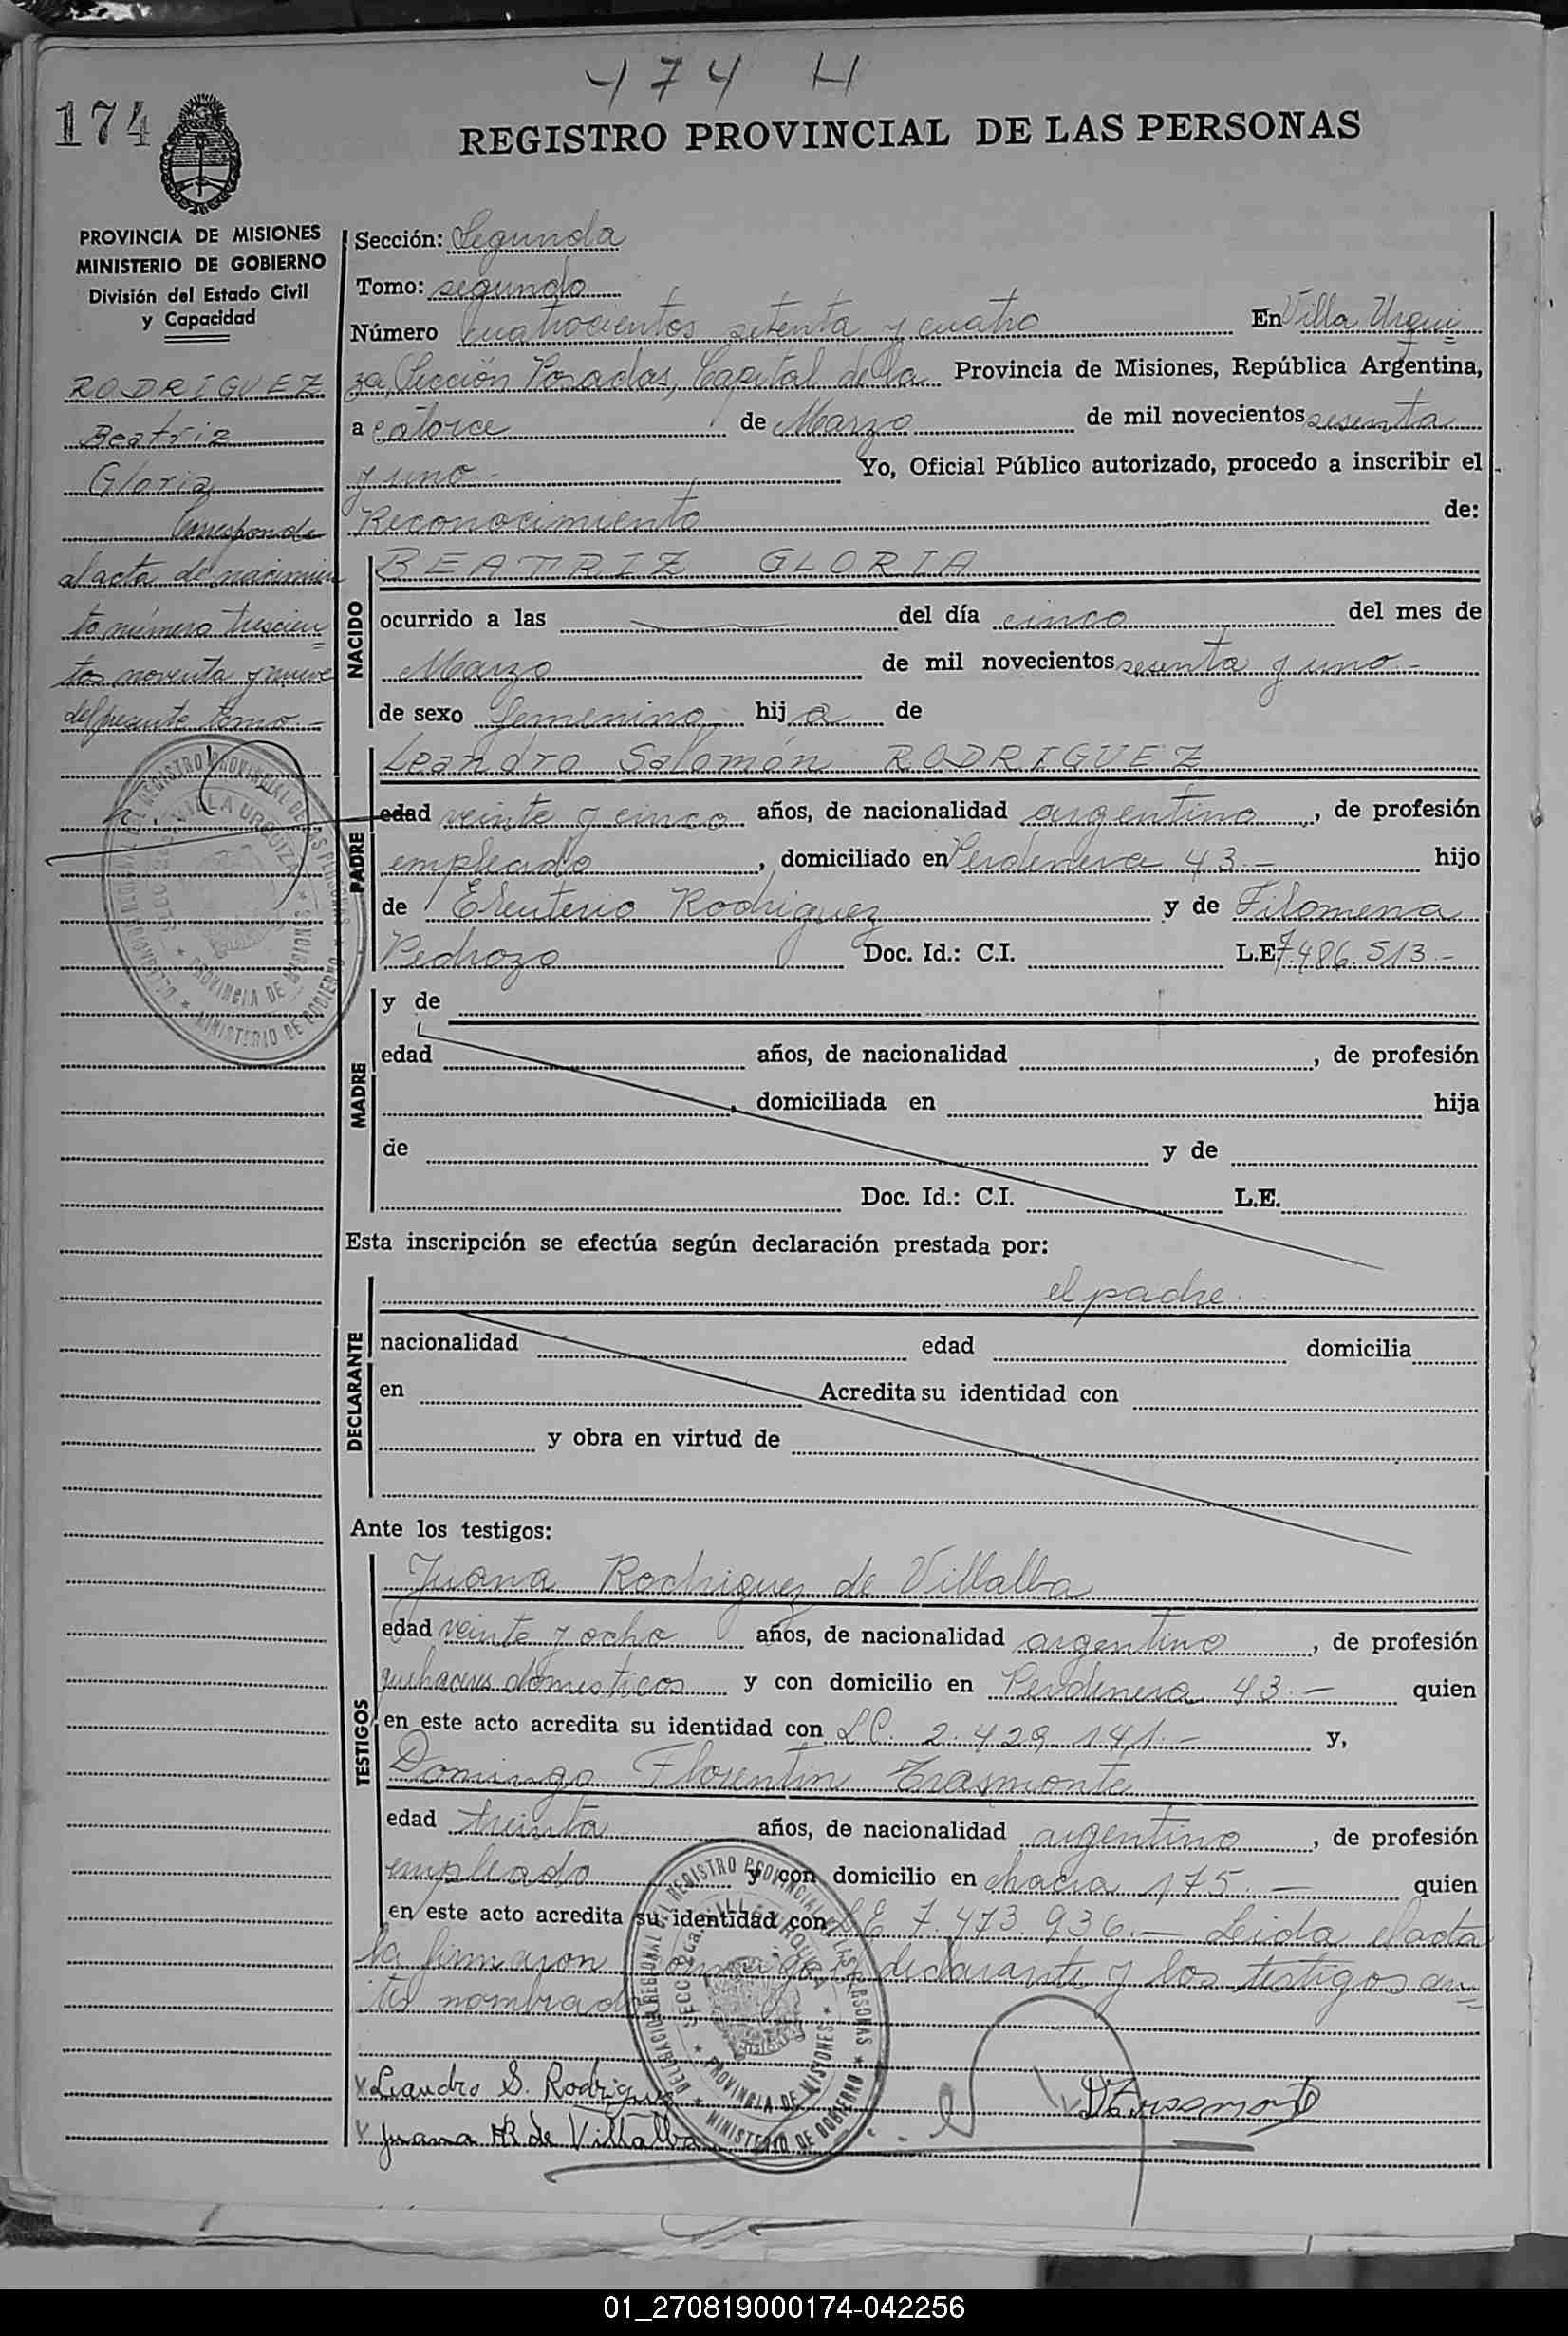 474 H
174
REGISTRO PROVINCIAL DE LAS PERSONAS
PROVINCIA DE MISIONES
MINISTERIO DE GOBIERNO
División del Estado Civil
y Capacidad
RODRIGUEZ
Beatriz
Gloria
Corresponde
al acta de nacimien
to número trescien
tos noventa y nueve
del presente tomo.-
Sección: Segunda
Tomo: segundo
Número cuatrocientos setenta y cuatro En Villa Urqui
za, Sección Posadas, Capital de la Provincia de Misiones, República Argentina,
a catorce de Marzo de mil novecientos sesenta
y uno.- Yo, Oficial Público autorizado, procedo a inscribir el
Reconocimiento de:
NACIDO
BEATRIZ GLORIA
ocurrido a las del día cinco del mes de
Marzo de mil novecientos sesenta y uno.-
de sexo femenino.- hij a de
PADRE
Leandro Salomón RODRIGUEZ
edad veinte y cinco años, de nacionalidad argentino, de profesión
empleado, domiciliado en Perdenera 43.- hijo
de Eleuterio Rodriguez y de Filomena
Pedrozo Doc. Id.: C.I. L.E. 7.486.513.-
MADRE
y de
edad años, de nacionalidad , de profesión
, domiciliada en hija
de y de
Doc. Id.: C.I. L.E.
Esta inscripción se efectúa según declaración prestada por:
DECLARANTE
el padre.
nacionalidad edad domicilia
en Acredita su identidad con
y obra en virtud de
Ante los testigos:
TESTIGOS
Juana Rodriguez de Villalba
edad veinte y ocho años, de nacionalidad argentina, de profesión
quehaceres domesticos y con domicilio en Perdenera 43.- quien
en este acto acredita su identidad con L.C. 2.429.141.- y,
Domingo Florentin Trasmonte
edad treinta años, de nacionalidad argentino, de profesión
empleado y con domicilio en chacra 175.- quien
en este acto acredita su identidad con L.E. 7.473.936.- Leida el acta
la firmaron conmigo el declarante y los testigos an
tes nombrados
Leandro S. Rodriguez
Juana R de Villalba
DELEGACION REGIONAL DEL REGISTRO PROVINCIAL DE LAS PERSONAS
SECC. 2ca. VILLA URQUIZA
PROVINCIA DE MISIONES
MINISTERIO DE GOBIERNO
01_270819000174-042256